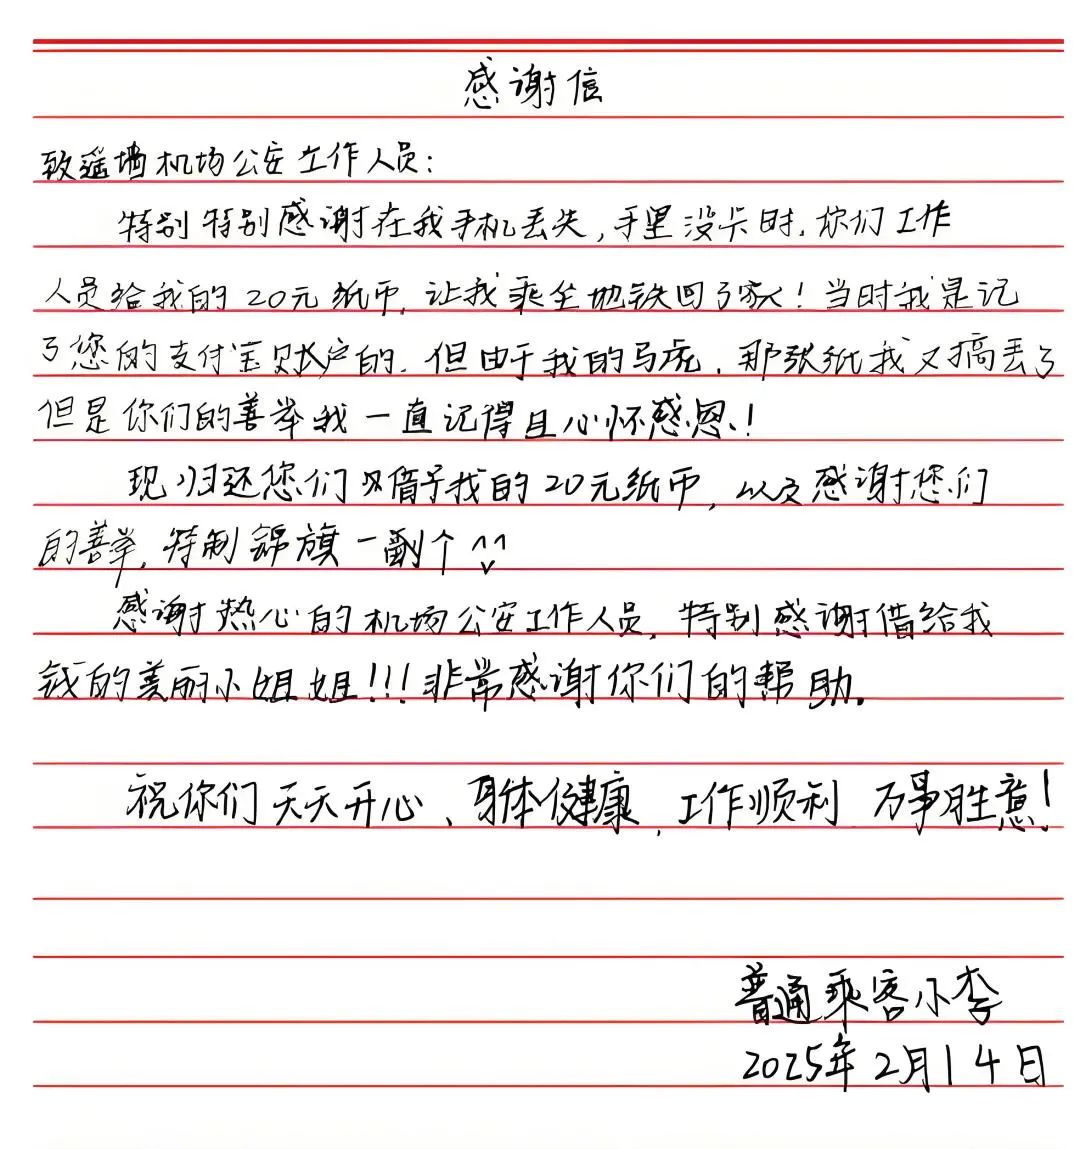 感谢信
致遥墙机场公安工作人员:
特别特别感谢在我手机丢失,手里没卡时,你们工作
人员给我的20元纸币,让我乘坐地铁回了家!当时我是记
了您的支付宝账户的,但由于我的马虎,那张纸我又搞丢了
但是你们的善举我一直记得且心怀感恩!
现归还您们借予我的20元纸币,以及感谢您们
的善举,特制锦旗一副个^^
感谢热心的机场公安工作人员,特别感谢借给我
钱的美丽小姐姐!!!非常感谢你们的帮助。
祝你们天天开心、身体健康,工作顺利 万事胜意!
普通乘客小李
2025年2月14日